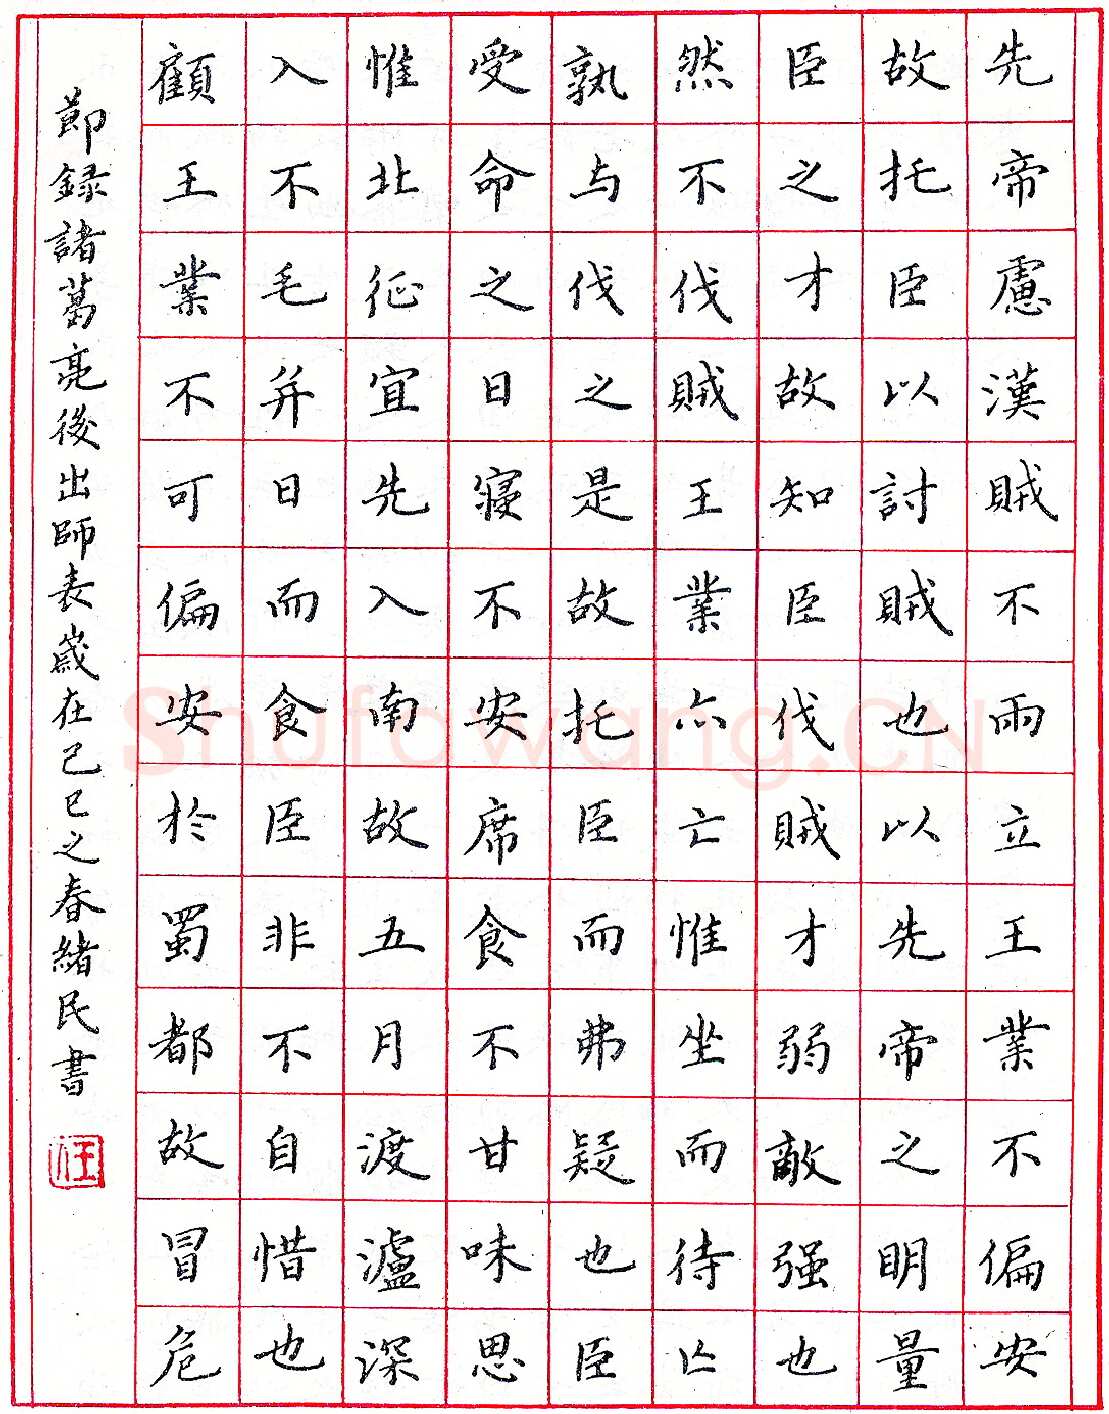 先帝慮漢賊不雨立王業不偏安
故托臣以討賊也以先帝之明量
臣之才故知臣伐賊才弱敵强也
然不伐賊王業亦亡惟坐而待亡
孰与伐之是故托臣而弗疑也臣
受命之日寢不安席食不甘味思
惟北征宜先入南故五月渡瀘深
入不毛并日而食臣非不自惜也
顧王業不可偏安於蜀都故冒危
節録諸葛亮後出師表歲在己巳之春緒民書
任
Shufawang.CN